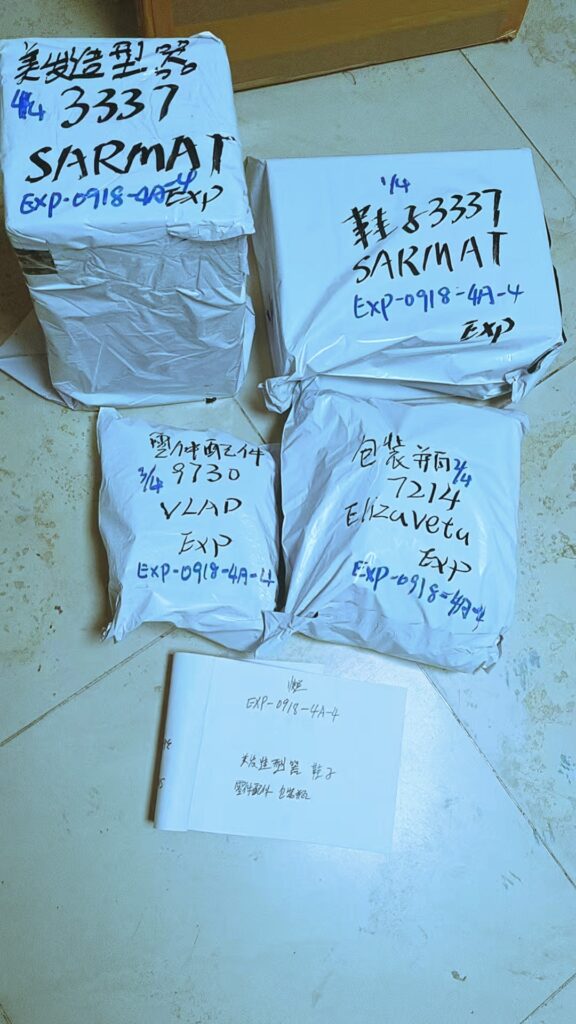 美发造型器
4/4 3337
SARMAT
EXP-0918-4A-4
EXP
1/4
鞋子3337
SARMAT
EXP-0918-4A-4
EXP
零件配件
3/4 9730
VLAD
EXP
EXP-0918-4A-4
包装瓶 2/4
7214
Elizaveta
EXP
EXP-0918-4A-4
EXP-0918-4A-4
美发造型器 鞋子
零件配件 包装瓶